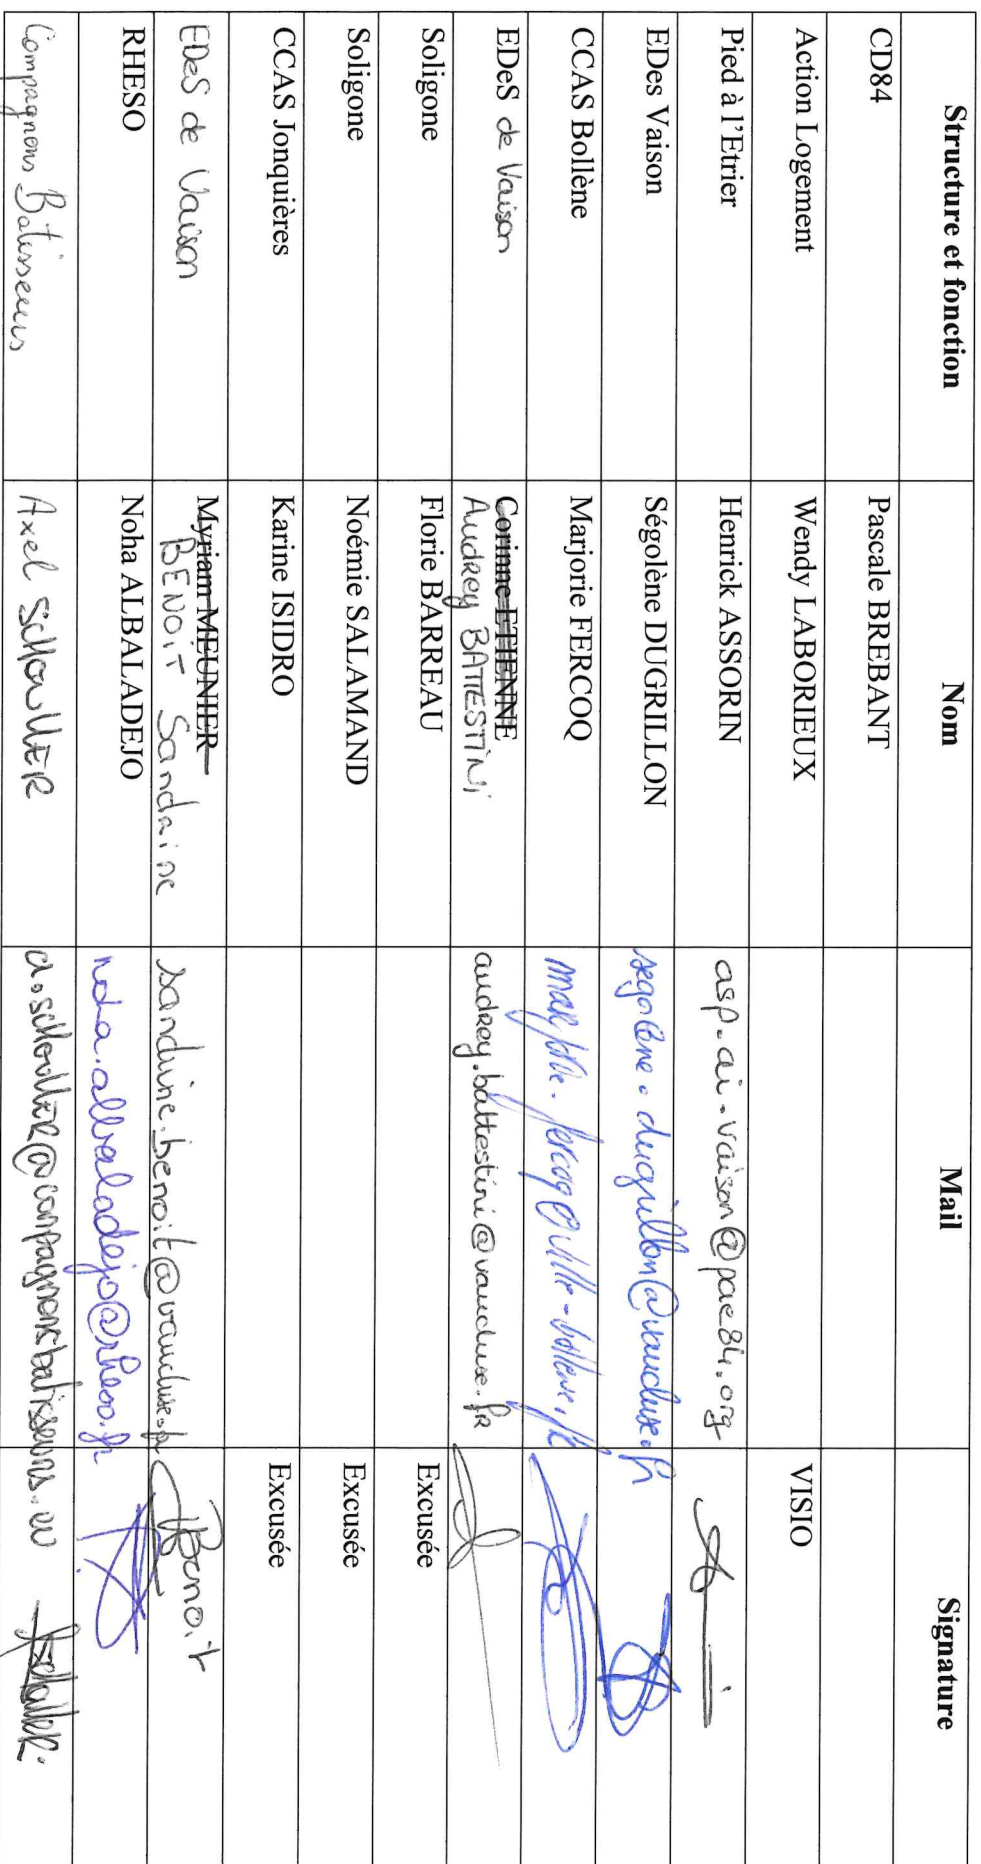 Structure et fonction Nom Mail Signature
CD84 Pascale BREBANT
Action Logement Wendy LABORIEUX VISIO
Pied à l'Etrier Henrick ASSORIN asp.ai.vaison@pae84.org
EDes Vaison Ségolène DUGRILLON segolene.dugrillon@vaucluse.fr
CCAS Bollène Marjorie FERCOQ marjorie.fercoq@ville-bollene.fr
EDeS de Vaison Corinne ETIENNE audrey.battestini@vaucluse.fr
Audrey BATTESTINI
Soligone Florie BARREAU Excusée
Soligone Noémie SALAMAND Excusée
CCAS Jonquières Karine ISIDRO Excusée
EDeS de Vaison Myriam MEUNIER sandrine.benoit@vaucluse.fr Benoit
BENOIT Sandrine
RHESO Noha ALBALADEJO noha.albaladejo@rheso.fr
Compagnons Batisseurs Axel SCHOULLER a.schouller@compagnonsbatisseurs.eu